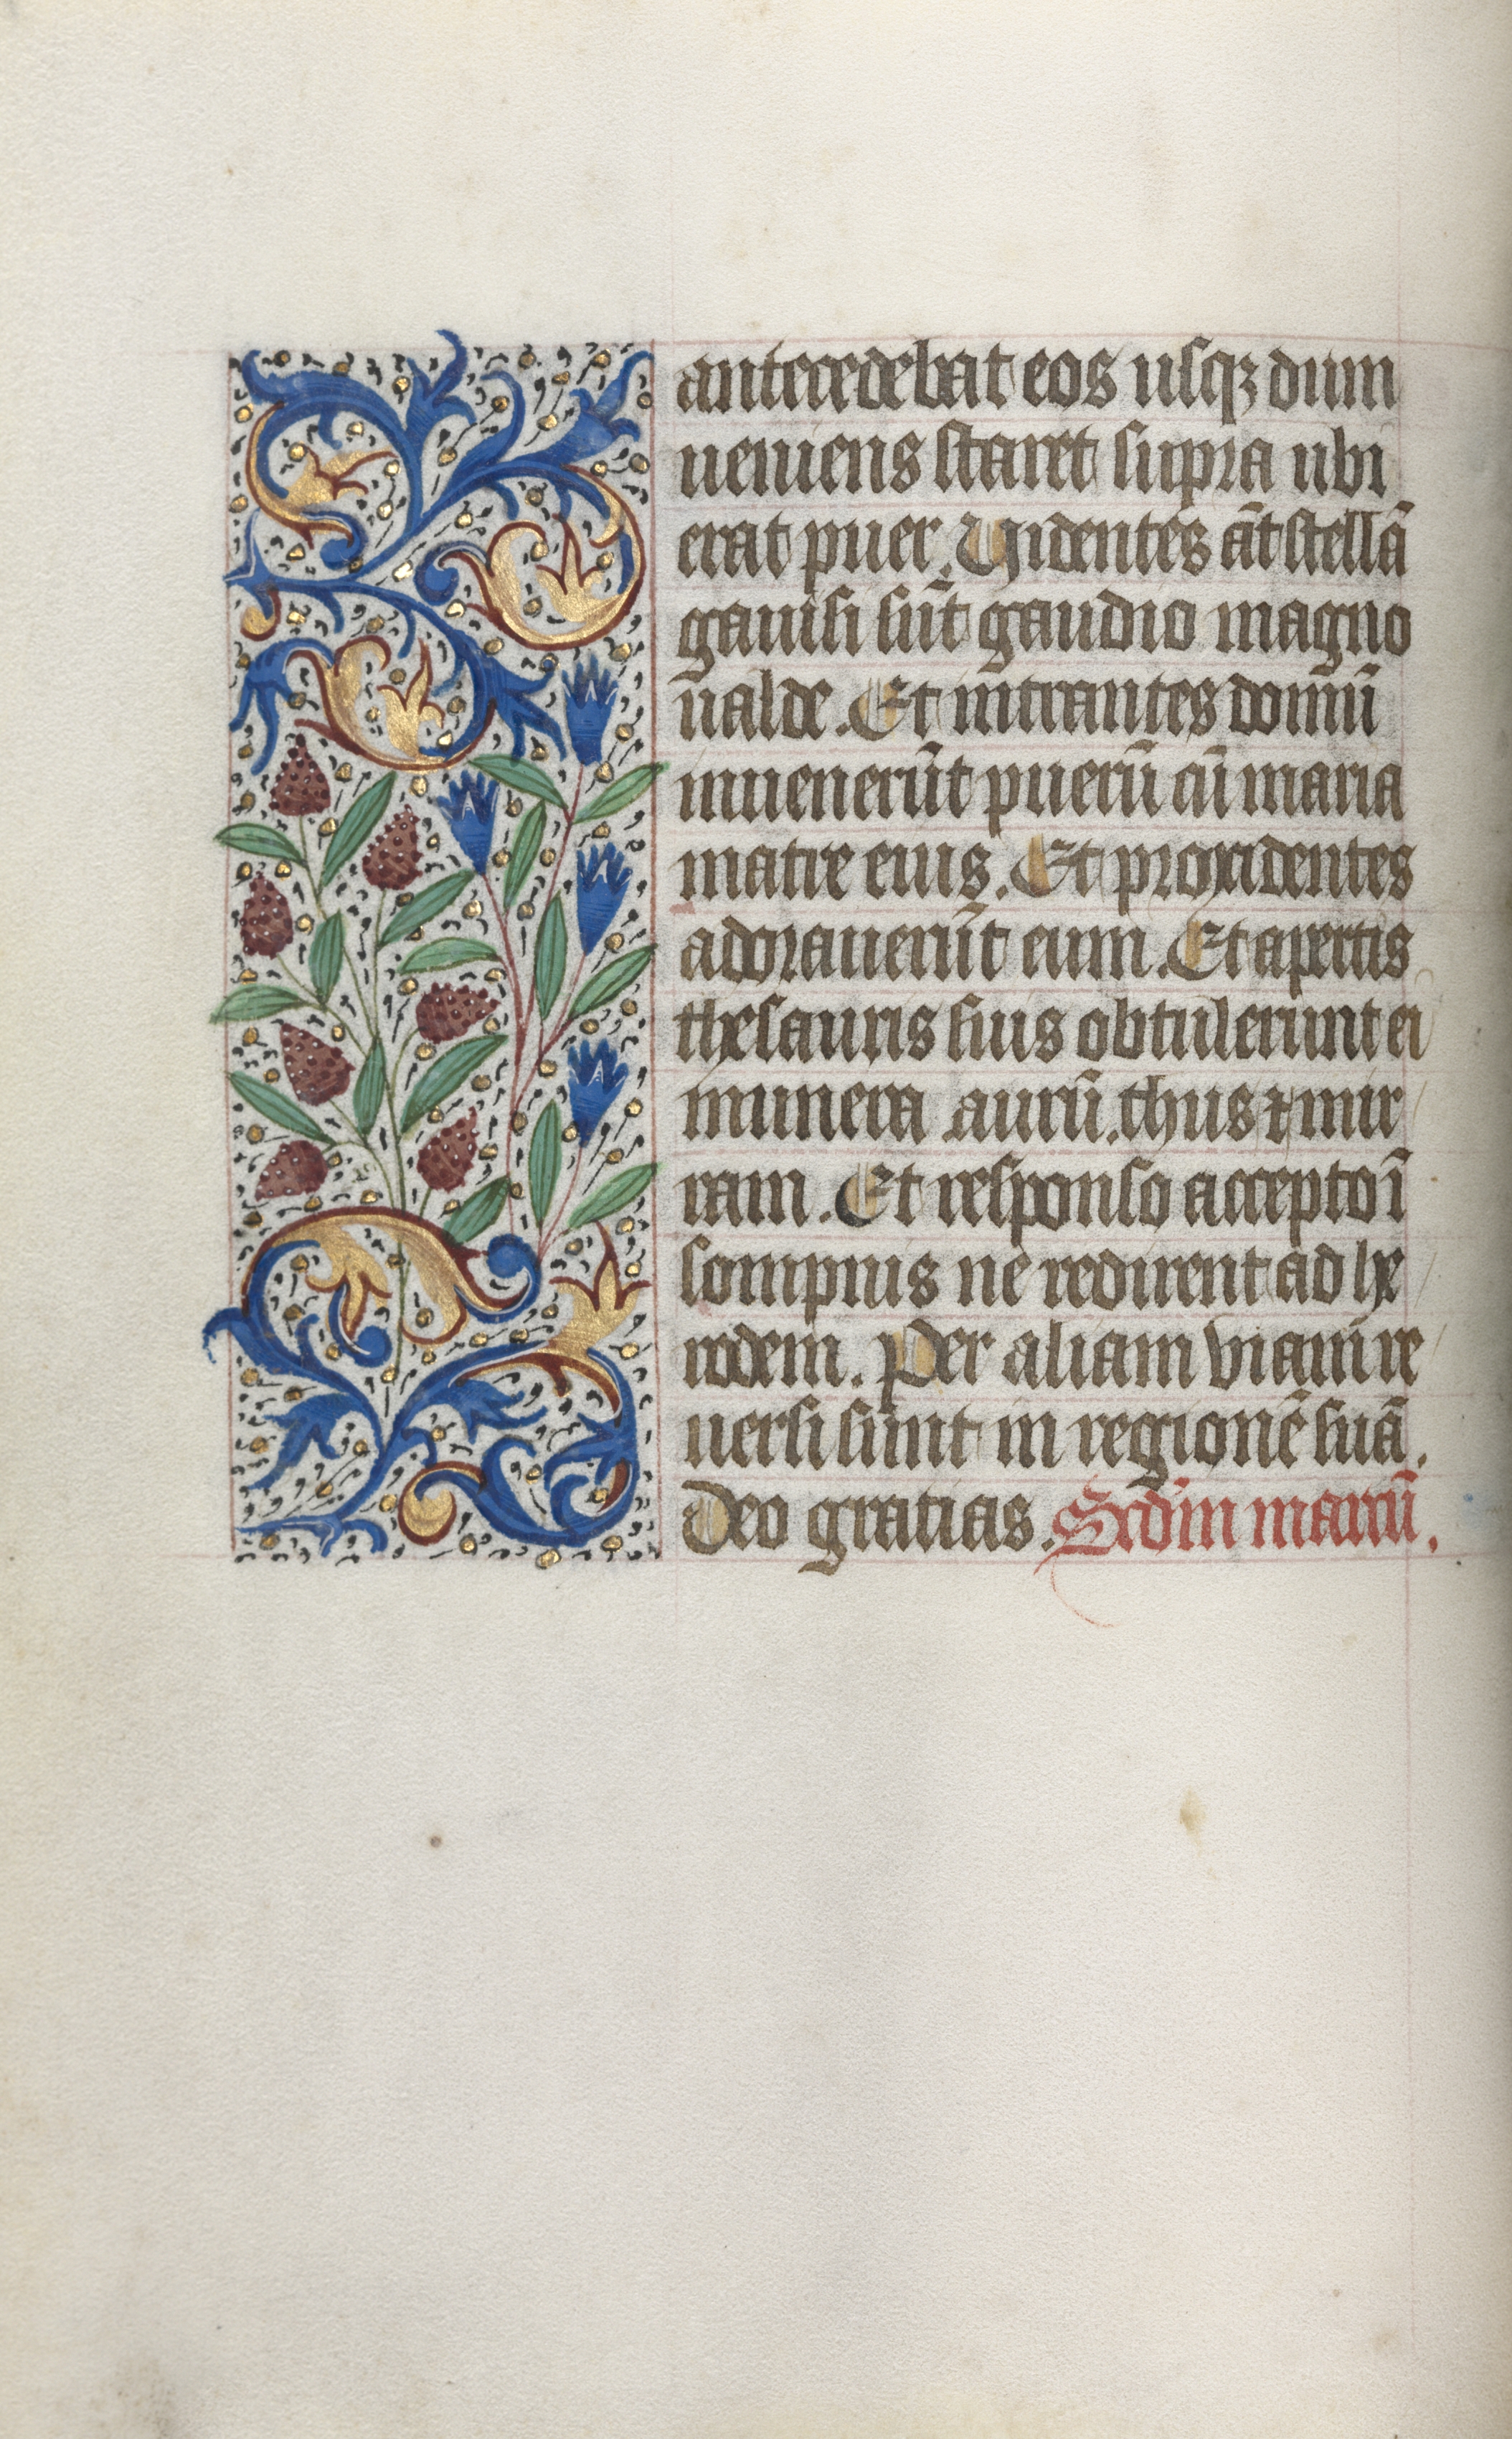 antecedebat eos usqꝫ dum
ueniens staret supra ubi
erat puer. Uidentes aūt stellā
gauisi sūt gaudio magno
ualde. Et intrantes domū
inuenerūt puerū cū maria
matre eius. Et procidentes
adorauerūt eum. Et apertis
thesauris suis obtulerunt ei
munera aurū. thus ⁊ mir
ram. Et responso accepto ī
sompnis ne redirent ad he
rodem. Per aliam viam re
uersi sunt in regionē suā.
Deo gratias. Scdm marcū.